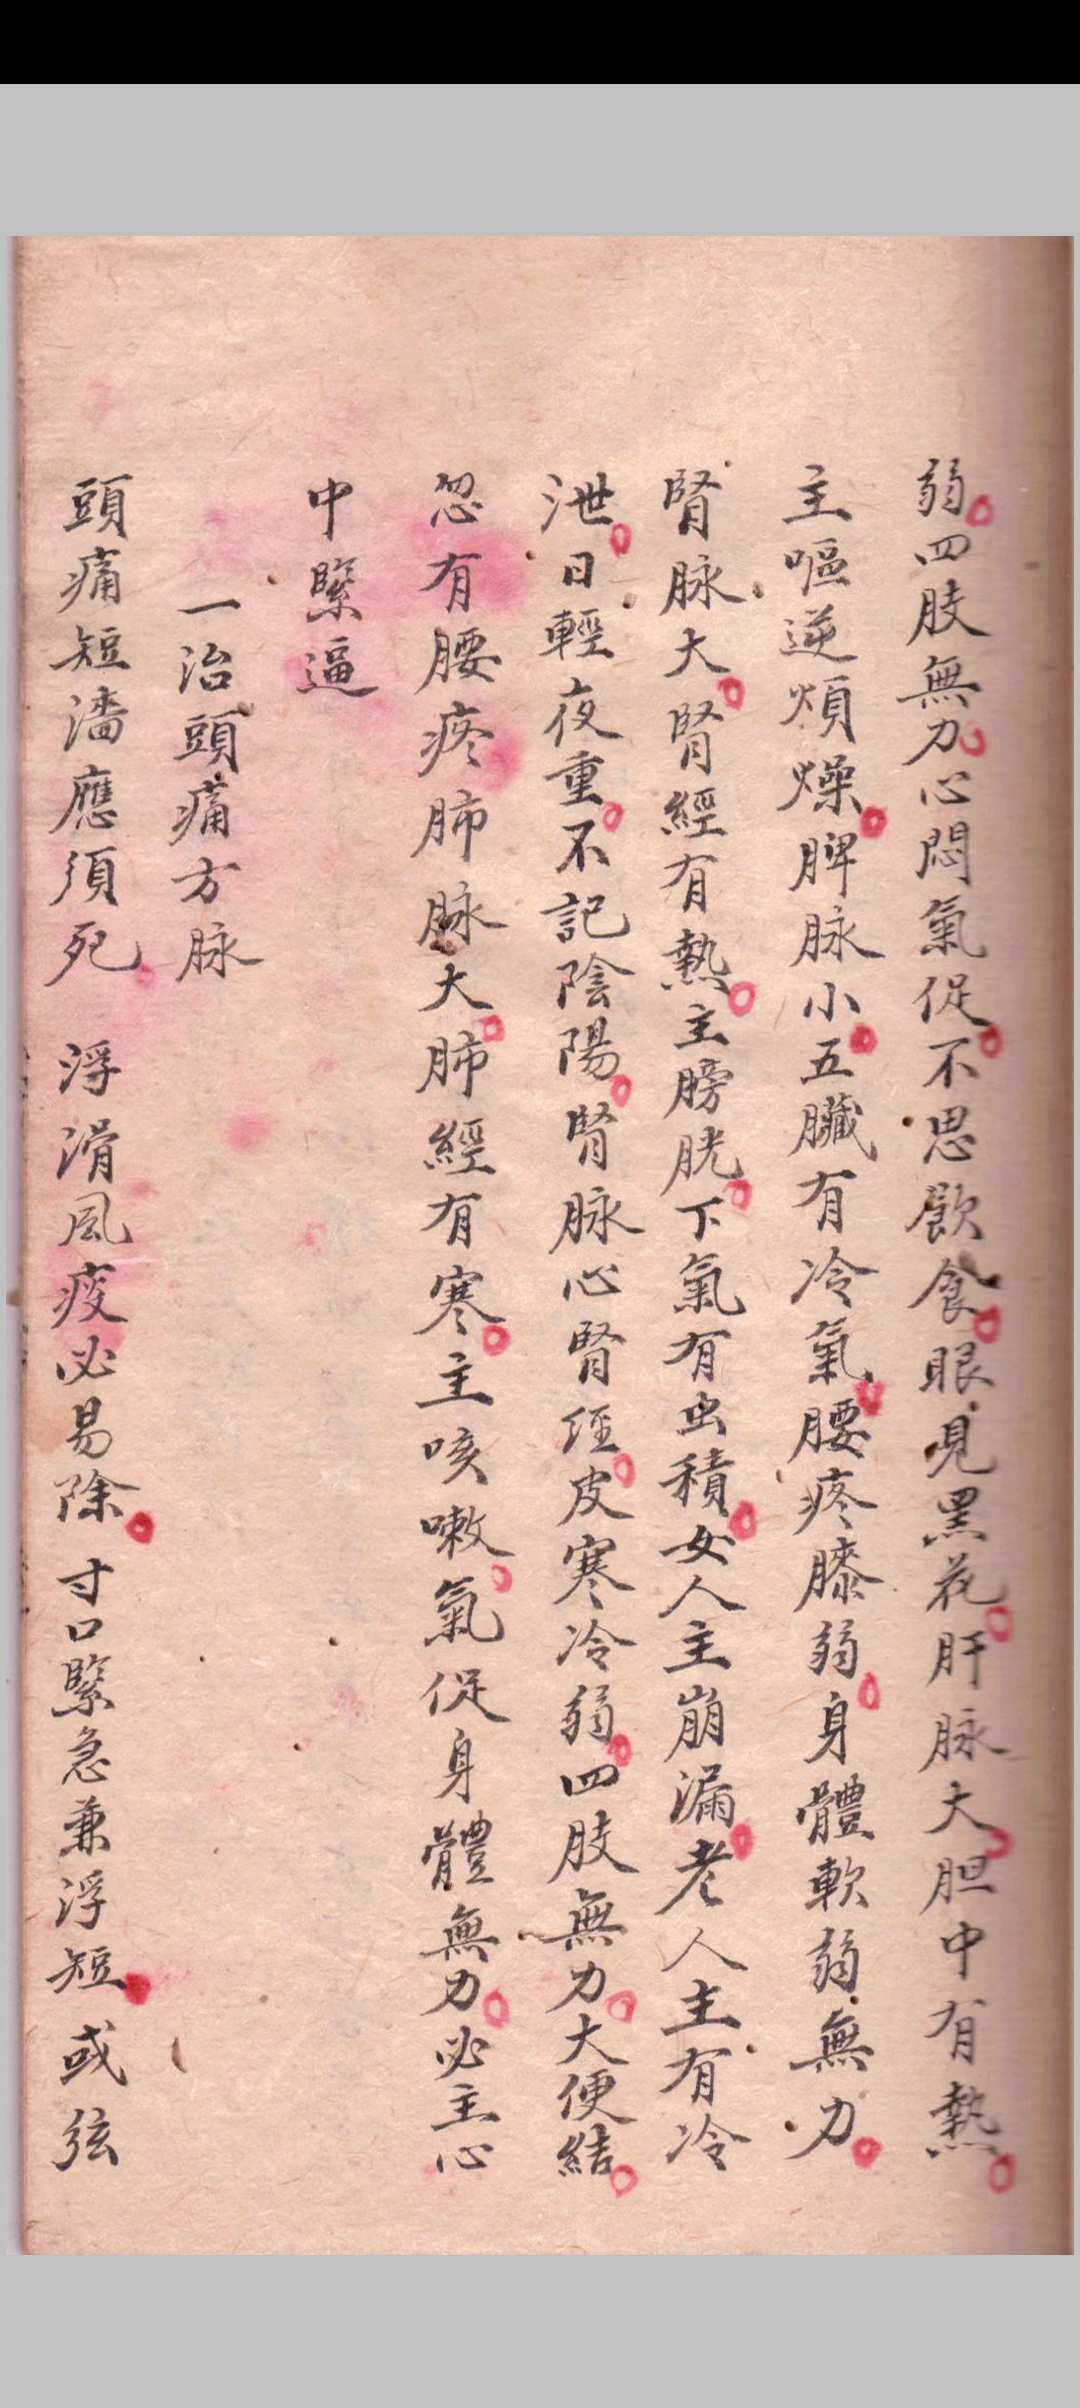 弱四肢無力心悶氣促不思飲食眼見黑花肝脉大胆中有熱
主嘔逆煩燥脾脉小五臟有冷氣腰疼膝弱身體軟弱無力
腎脉大腎經有熱主膀胱下氣有虫積女人主崩漏老人主有冷
泄日輕夜重不記陰陽腎脉心腎经皮寒冷弱四肢無力大便結
忽有腰疼肺脉大肺經有寒主咳嗽氣促身體無力必主心
中緊逼
一治頭痛方脉
頭痛短濇應須死 浮滑風痰必易除 寸口緊急兼浮短或弦